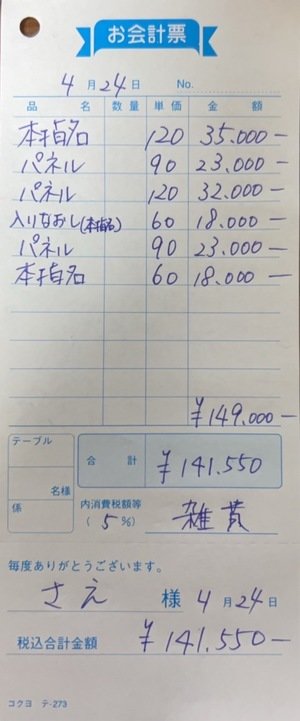 お会計票
4月24日 No.
品名 数量 単価 金額
本指名 120 35.000-
パネル 90 23.000-
パネル 120 32.000-
入りなおし(本指名) 60 18.000-
パネル 90 23.000-
本指名 60 18.000-
¥149.000-
テーブル
名様
係
合計 ¥141.550
内消費税額等
(5%) 雑費
毎度ありがとうございます。
さえ 様 4月24日
税込合計金額 ¥141.550-
コクヨ テ-273